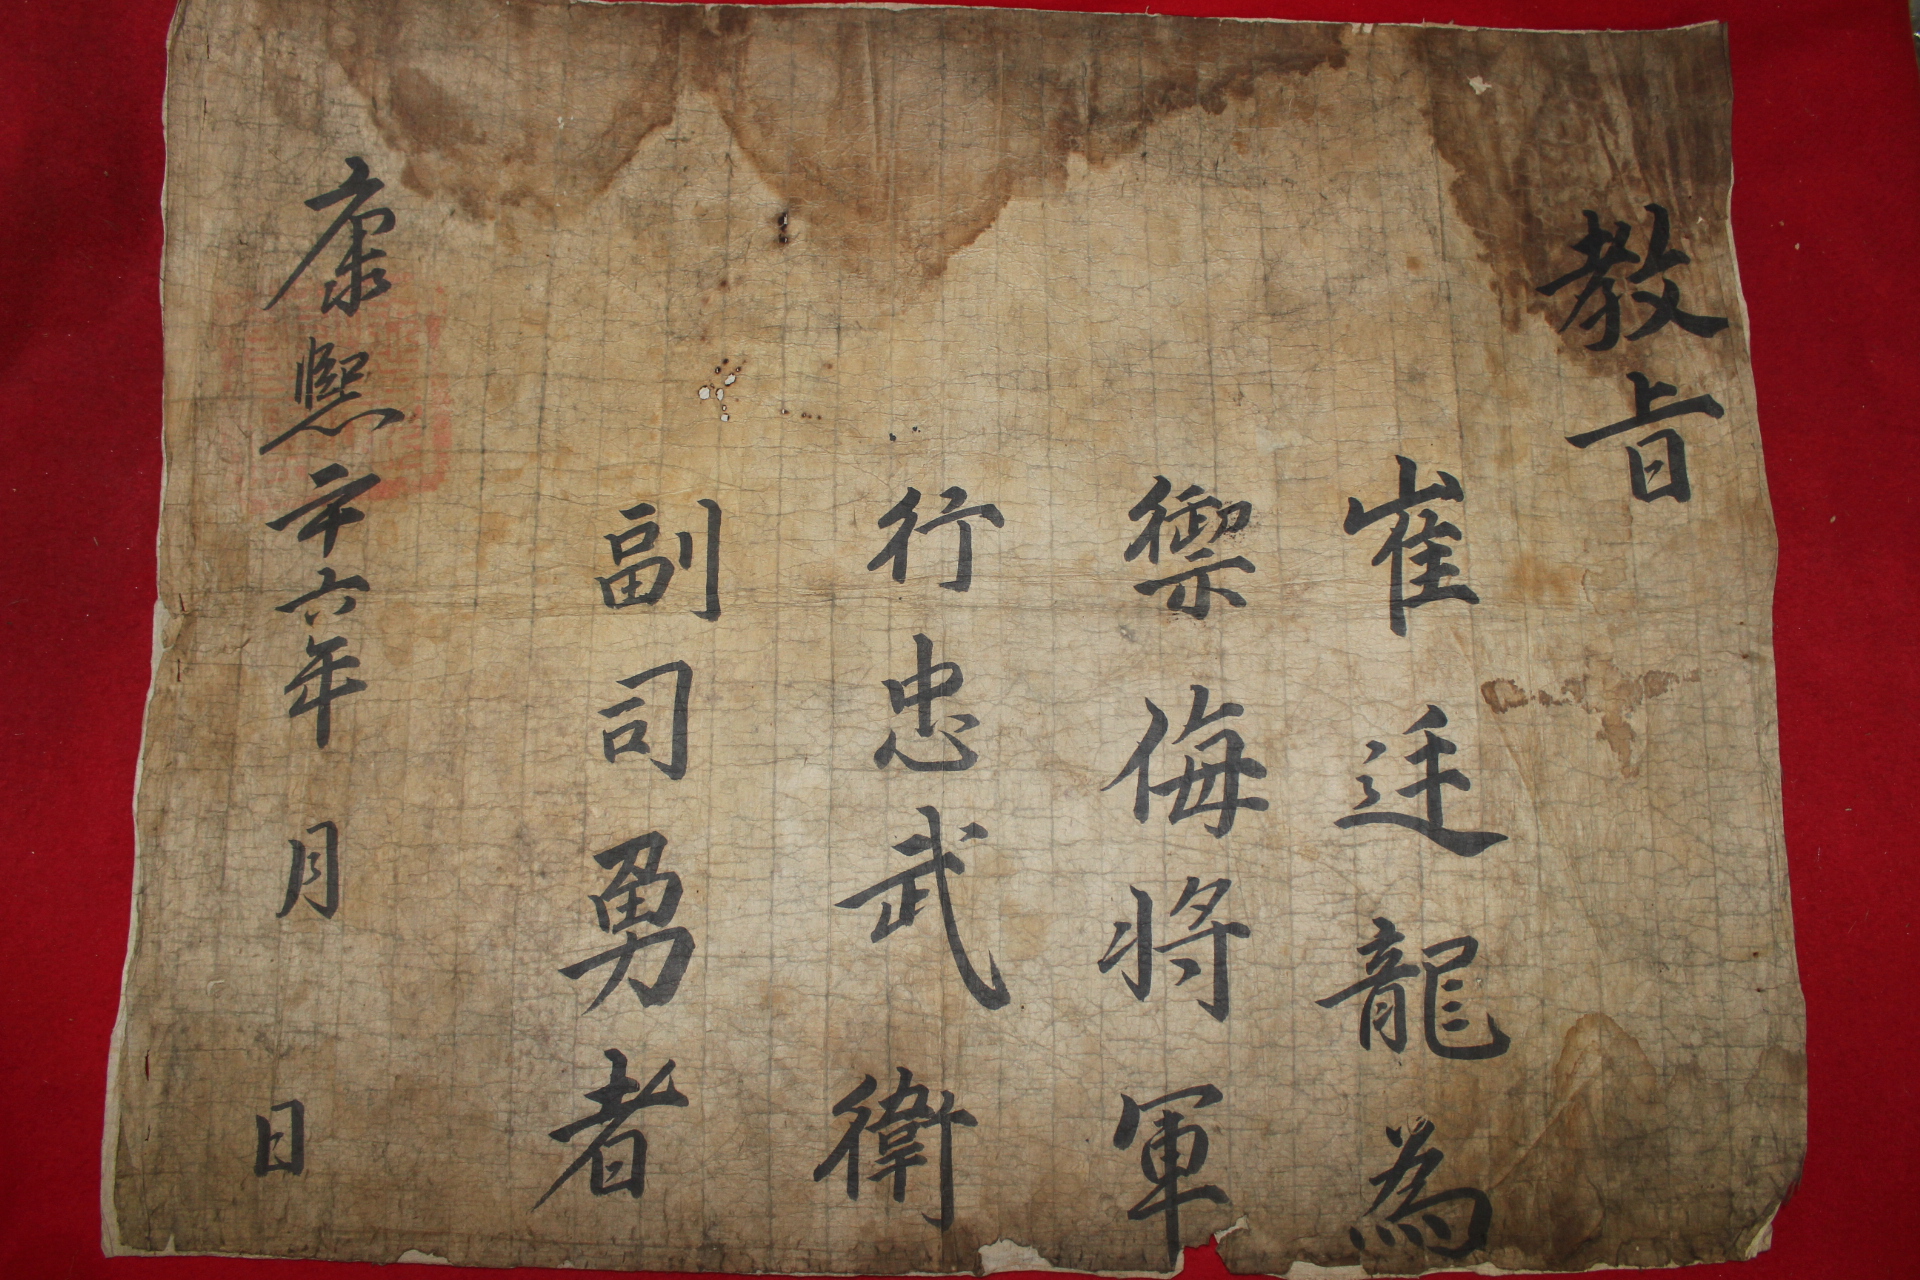 教旨
崔廷龍為
禦侮将軍
行忠武衛
副司勇者
康熙二十六年 月 日